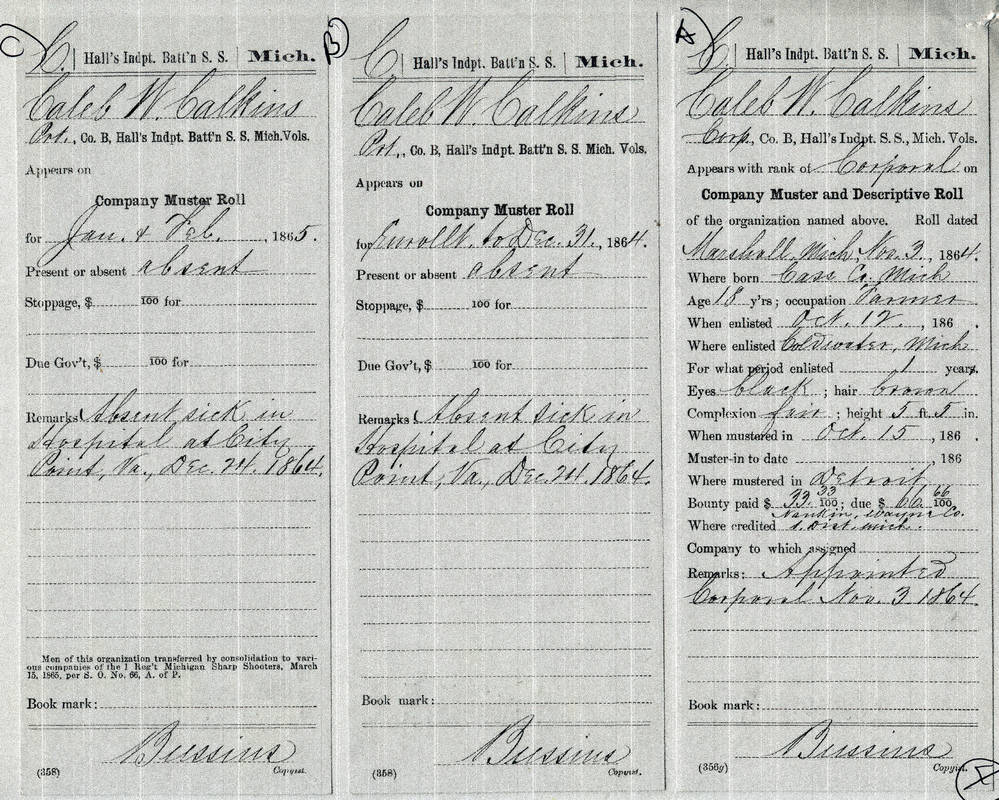 C
C. | Hall's Indpt. Batt'n S. S. | Mich.
Caleb W. Calkins
Pvt., Co. B, Hall's Indpt. Batt'n S. S. Mich. Vols.
Appears on
Company Muster Roll
for Jan. & Feb., 1865.
Present or absent absent
Stoppage, $ 100 for
Due Gov't, $ 100 for
Remarks: Absent sick in
Hospital at City
Point, Va., Dec. 24. 1864.
Men of this organization transferred by consolidation to vari-
ous companies of the 1 Reg't Michigan Sharp Shooters, March
15, 1865, per S. O. No. 66, A. of P.
Book mark:
Bussins
(358) Copyist.
B
C | Hall's Indpt. Batt'n S. S. | Mich.
Caleb W. Calkins
Pvt., Co. B, Hall's Indpt. Batt'n S. S. Mich. Vols.
Appears on
Company Muster Roll
for Enrollt. to Dec. 31., 1864.
Present or absent absent
Stoppage, $ 100 for
Due Gov't, $ 100 for
Remarks: Absent sick in
Hospital at City
Point, Va., Dec. 24. 1864.
Book mark:
Bussins
(358) Copyist.
A
C | Hall's Indpt. Batt'n S. S. | Mich.
Caleb W. Calkins
Corp., Co. B, Hall's Indpt. S. S., Mich. Vols.
Appears with rank of Corporal on
Company Muster and Descriptive Roll
of the organization named above. Roll dated
Marshall, Mich, Nov. 3, 1864.
Where born Cass Co. Mich
Age 18 y'rs; occupation Farmer
When enlisted Oct. 12., 186 .
Where enlisted Coldwater, Mich
For what period enlisted 1 years.
Eyes black; hair brown
Complexion fair; height 5 ft. 5 in.
When mustered in Oct. 15, 186 .
Muster-in to date , 186
Where mustered in Detroit
Bounty paid $ 33. 33/100; due $ 66. 66/100
Nankin, Wayne Co.
Where credited 1. Dist. Mich.
Company to which assigned
Remarks: Appointed
Corporal Nov. 3 1864.
Book mark:
Bussins
(356g) Copyist.